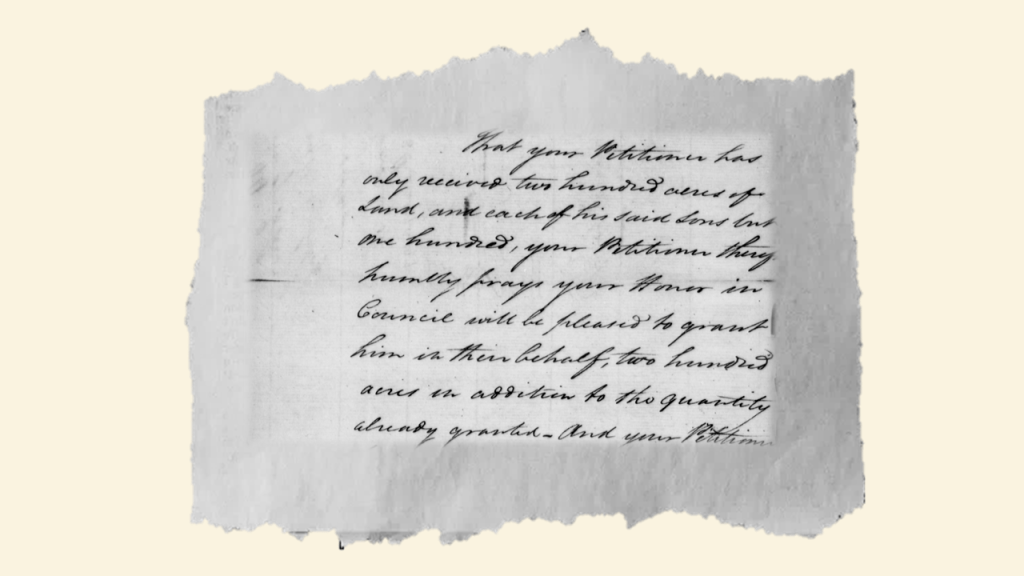 That your Petitioner has
only received two hundred acres of
Land, and each of his said Sons but
one hundred, your Petitioner
humbly prays your Honor in
Council will be pleased to grant
him in their behalf, two hundred
acres in addition to the quantity
already granted - And your Petitioner